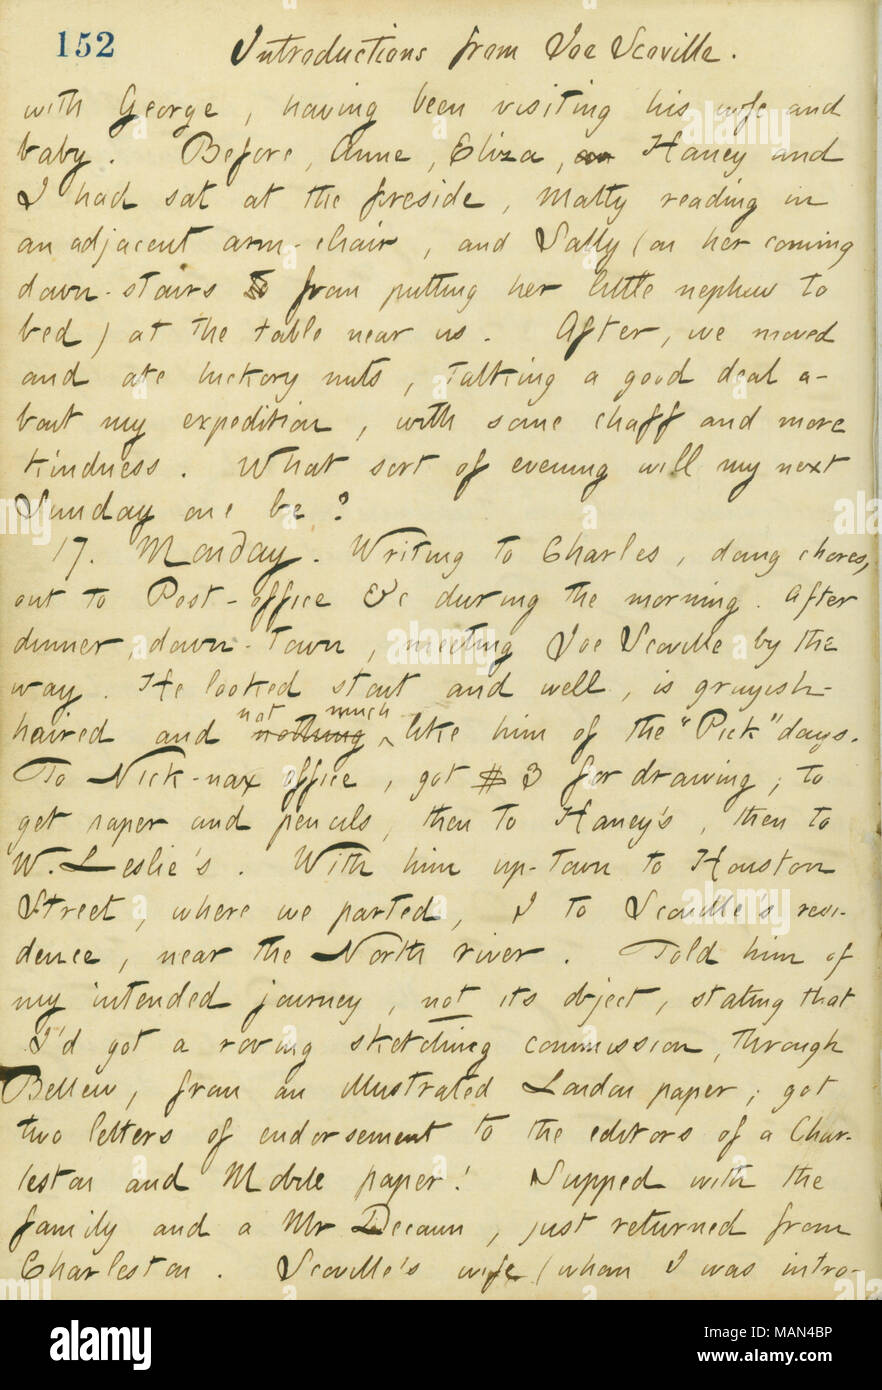 152
Introductions from Joe Scoville.
with George, having been visiting his wife and
baby. Before, Anne, Eliza, on Haney and
I had sat at the fireside, Matty reading in
an adjacent arm-chair, and Sally (on her coming
down-stairs to from putting her little nephew to
bed) at the table near us. After, we moved
and ate hickory nuts, talking a good deal a-
bout my expedition, with some chaff and more
kindness. What sort of evening will my next
Sunday one be?
17. Monday. Writing to Charles, doing chores,
out to Post-office &c during the morning. After
dinner, down-town, meeting Joe Scoville by the
way. He looked stout and well, is grayish-
haired and nothing not much like him of the "Pick" days.
To Nick-nax office, got $3 for drawing; to
get paper and pencils, then to Haney's, then to
W. Leslie's. With him up-town to Houston
Street, where we parted, I to Scoville's resi-
dence, near the North river. Told him of
my intended journey, not its object, stating that
I'd got a roving sketching commission, through
Bellew, from an illustrated London paper; got
two letters of endorsement to the editors of a Char-
leston and Mobile paper! Supped with the
family and a Mr Decaun, just returned from
Charleston. Scoville's wife (whom I was intro-
alamy
Image ID: MAN4BP
www.alamy.com